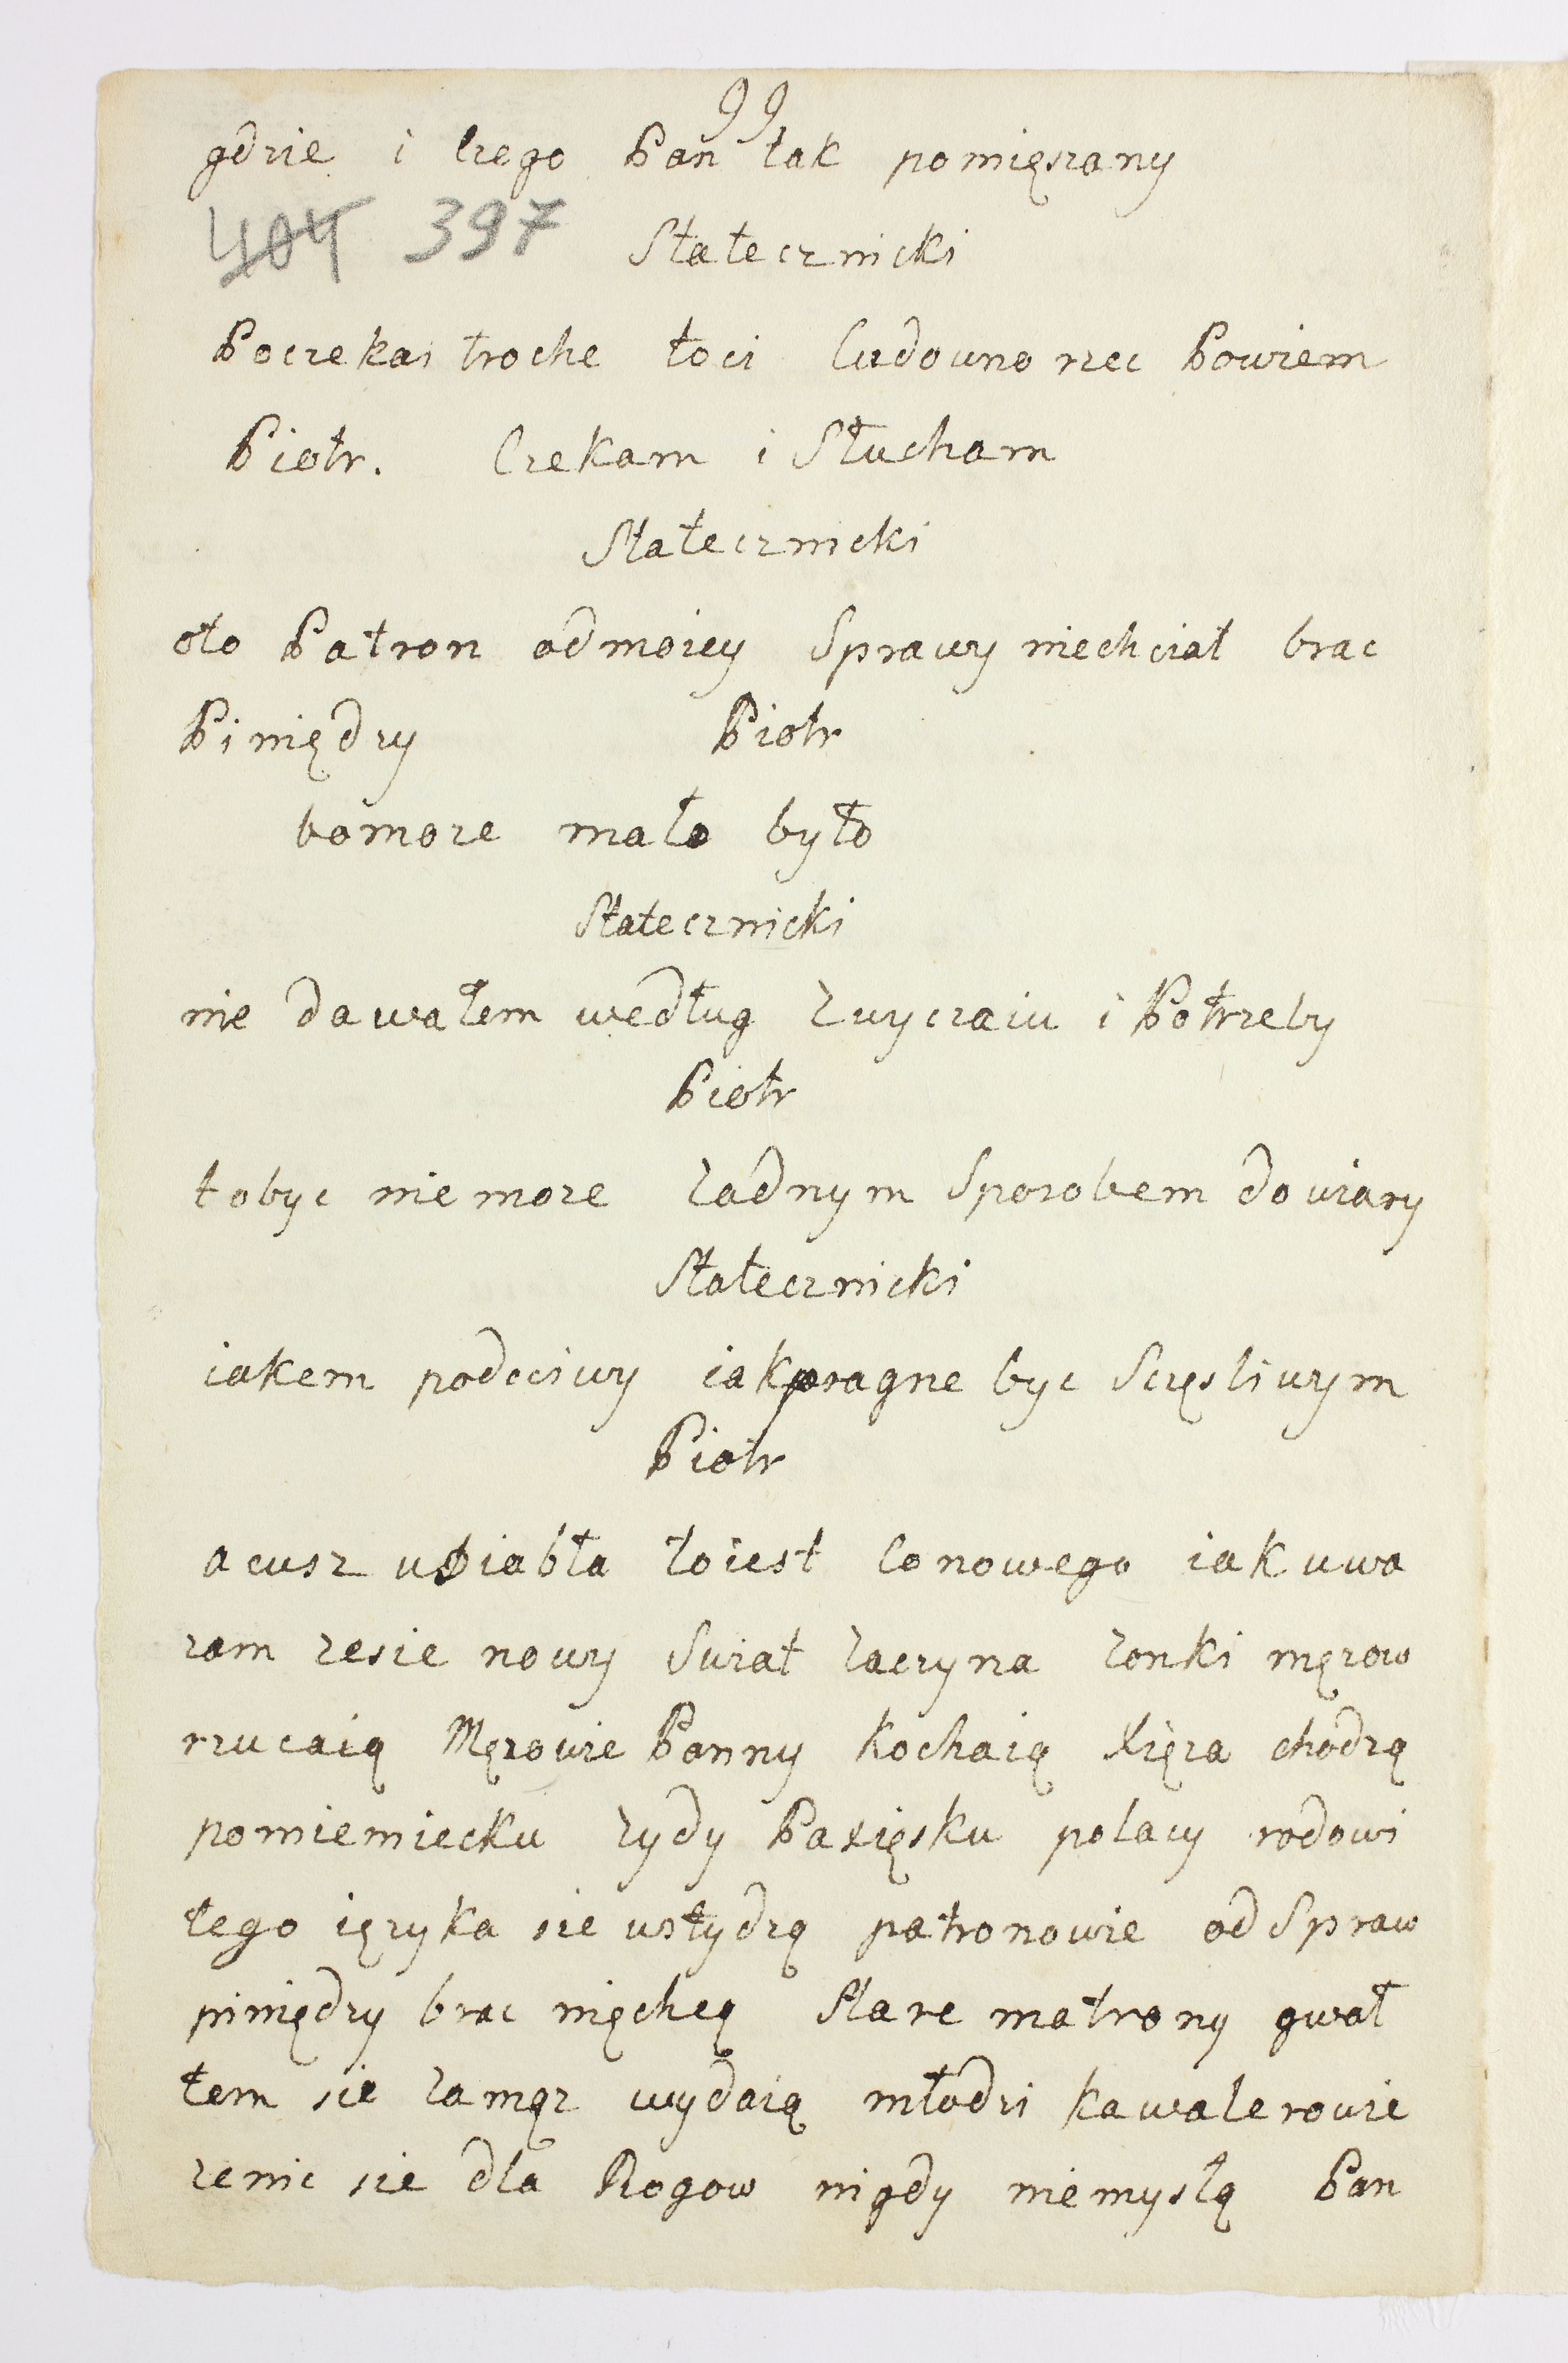 99
gdzie i czego Pan tak pomięszany
404 397 Statecznicki
Poczekai troche toci Cudowno rzec Powiem
Piotr. Czekam i Słucham
Statecznicki
oto Patron odmoiey Sprawy niechciał brac
Piniędzy Piotr
bomoze mało było
Statecznicki
nie dawałem według Zwyczaiu i Potrzeby
Piotr
tobyc niemoze Zadnym Sposobem dowiary
Statecznicki
iakem podcciwy iakpragne byc Sczęsliwym
Piotr
acusz uDiabła toiest Conowego iak uwa
zam zesie nowy Swiat Zaczyna Zonki męzow
rzucaią Męzowie Panny Kochaią Xięza chodzą
poniemiecku Zydy Paxięsku polacy rodowi
tego ięzyka sie wstydzą patronowie od Spraw
piniędzy brac niechcą Stare matrony gwał
tem sie Zamąz wydaią młodzi kawalerowie
zenic sie dla Rogow nigdy niemyslą Pan